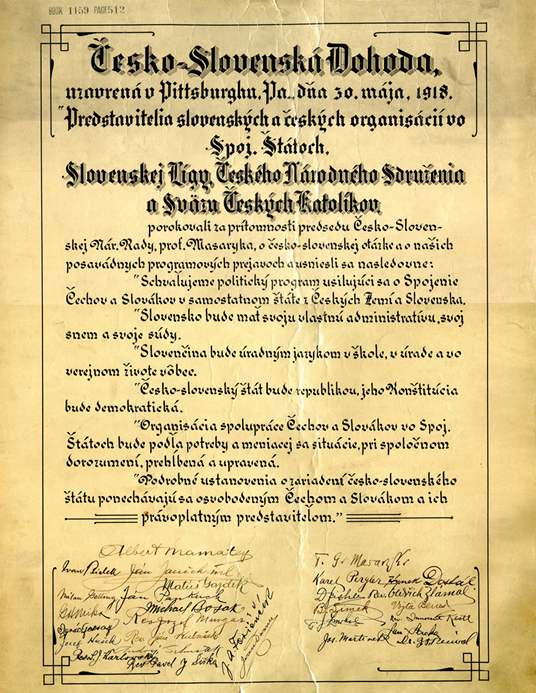 BOOK 1159 PAGE 512
Česko-Slovenská Dohoda,
uzavrená v Pittsburghu, Pa., dňa 30. mája, 1918.
"Predstavitelia slovenských a českých organisácií vo
Spoj. Štátoch,
Slovenskej Ligy, Českého Národného Sdruženia
a Sväzu Českých Katolíkov,
porokovali za prítomnosti predsedu Česko-Sloven-
skej Nár. Rady, prof. Masaryka, o česko-slovenskej otázke a o našich
posavádnych programových prejavoch a usniesli sa nasledovne:
"Schvaľujeme politický program usilujúci sa o Spojenie
Čechov a Slovákov v samostatnom štáte z Českých Zemí a Slovenska.
"Slovensko bude mať svoju vlastnú administratívu, svoj
snem a svoje súdy.
"Slovenčina bude úradným jazykom v škole, v úrade a vo
verejnom živote vôbec.
"Česko-slovenský štát bude republikou, jeho Konštitúcia
bude demokratická.
"Organisácia spolupráce Čechov a Slovákov vo Spoj.
Štátoch bude podľa potreby a meniacej sa situácie, pri spoločnom
dorozumení, prehĺbená a upravená.
"Podrobné ustanovenia o zariadení česko-slovenského
štátu ponechávajú sa osvobodeným Čechom a Slovákom a ich
právoplatným predstaviteľom."
Albert Mamatey
T. G. Masaryk
Ivan Bielek Ján Janček
Karel Pergler Hynek Dostál
Matúš Gazdík
Milan Getting
Rev. Oldřich Zlámal
Michal Bosák
Vojta Beneš
Jozef Hušek
Rev. Pavel J. Šiška